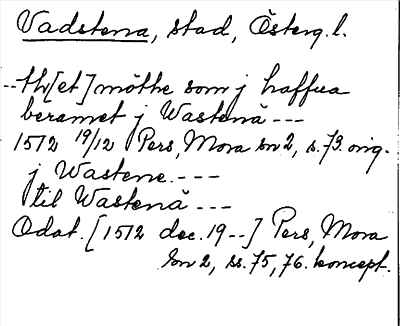 Vadstena, stad, Österg. l.
-- th[et] möthe som j haffua
beramet j Wastenå ---
1512 19/12 Pers, Mora sn 2, s. 73. orig.
j Wastene. ---
til Wastenå ---
Odat. [1512 dec. 19--] Pers, Mora
sn 2, ss. 75, 76. koncept.